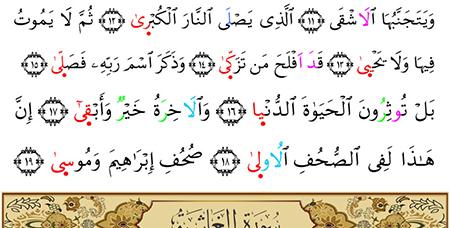 وَيَتَجَنَّبُهَا اَلَاشْقَى ﴿١١﴾ اَلَّذِى يَصْلَى اَلنَّارَ اَلْكُبْرىٰ ﴿١٢﴾ ثُمَّ لَا يَمُوتُ
فِيهَا وَلَا يَحْيىٰ ﴿١٣﴾ قَدَ اَفْلَحَ مَن تَزَكّىٰ ﴿١٤﴾ وَذَكَرَ اَسْمَ رَبِّهِۦ فَصَلّىٰ ﴿١٥﴾
بَلْ تُوثِرُونَ اَلْحَيَوٰةَ اَلدُّنْيا ﴿١٦﴾ وَالَاخِرَةُ خَيْرٌ وَأَبْقىٰ ﴿١٧﴾ إِنَّ
هَٰذَا لَفِى اِلصُّحُفِ اِلُاولىٰ ﴿١٨﴾ صُحُفِ إِبْرَاهِيمَ وَمُوسىٰ ﴿١٩﴾
سُورَةُ الغَاشِيَةِ